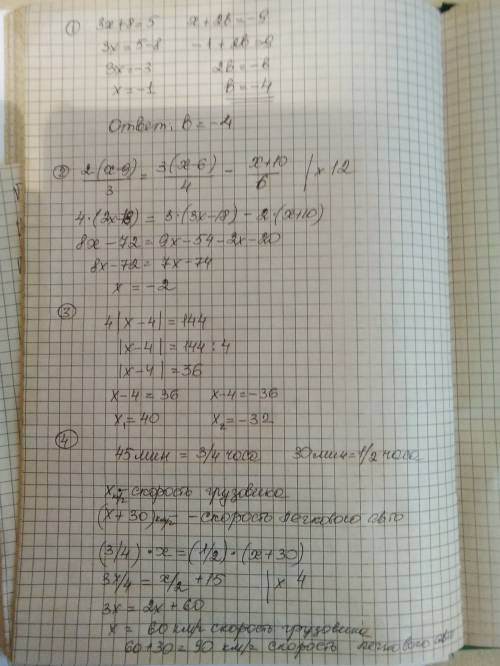 ① 3x+8=5   x+2в=-9
3x=5-8   -1+2в=-9
3x=-3   2в=-8
x=-1   в=-4
Ответ: в=-4
② 2·(x-9)/3 = 3(x-6)/4 - x+10/6 | × 12
4·(2x-18) = 3·(3x-18) - 2·(x+10)
8x-72=9x-54-2x-20
8x-72=7x-74
x = -2
③
4|x-4|=144
|x-4|=144:4
|x-4|=36
x-4=36   x-4=-36
x₁=40   x₂=-32
④
45мин = 3/4 часа   30мин=1/2 часа
x км/ч - скорость грузовика
(x+30) км/ч - скорость легкового авто
(3/4)·x=(1/2)·(x+30)
3x/4 = x/2 +15 | × 4
3x=2x+60
x = 60 км/ч скорость грузовика
60+30=90 км/ч скорость легкового авто